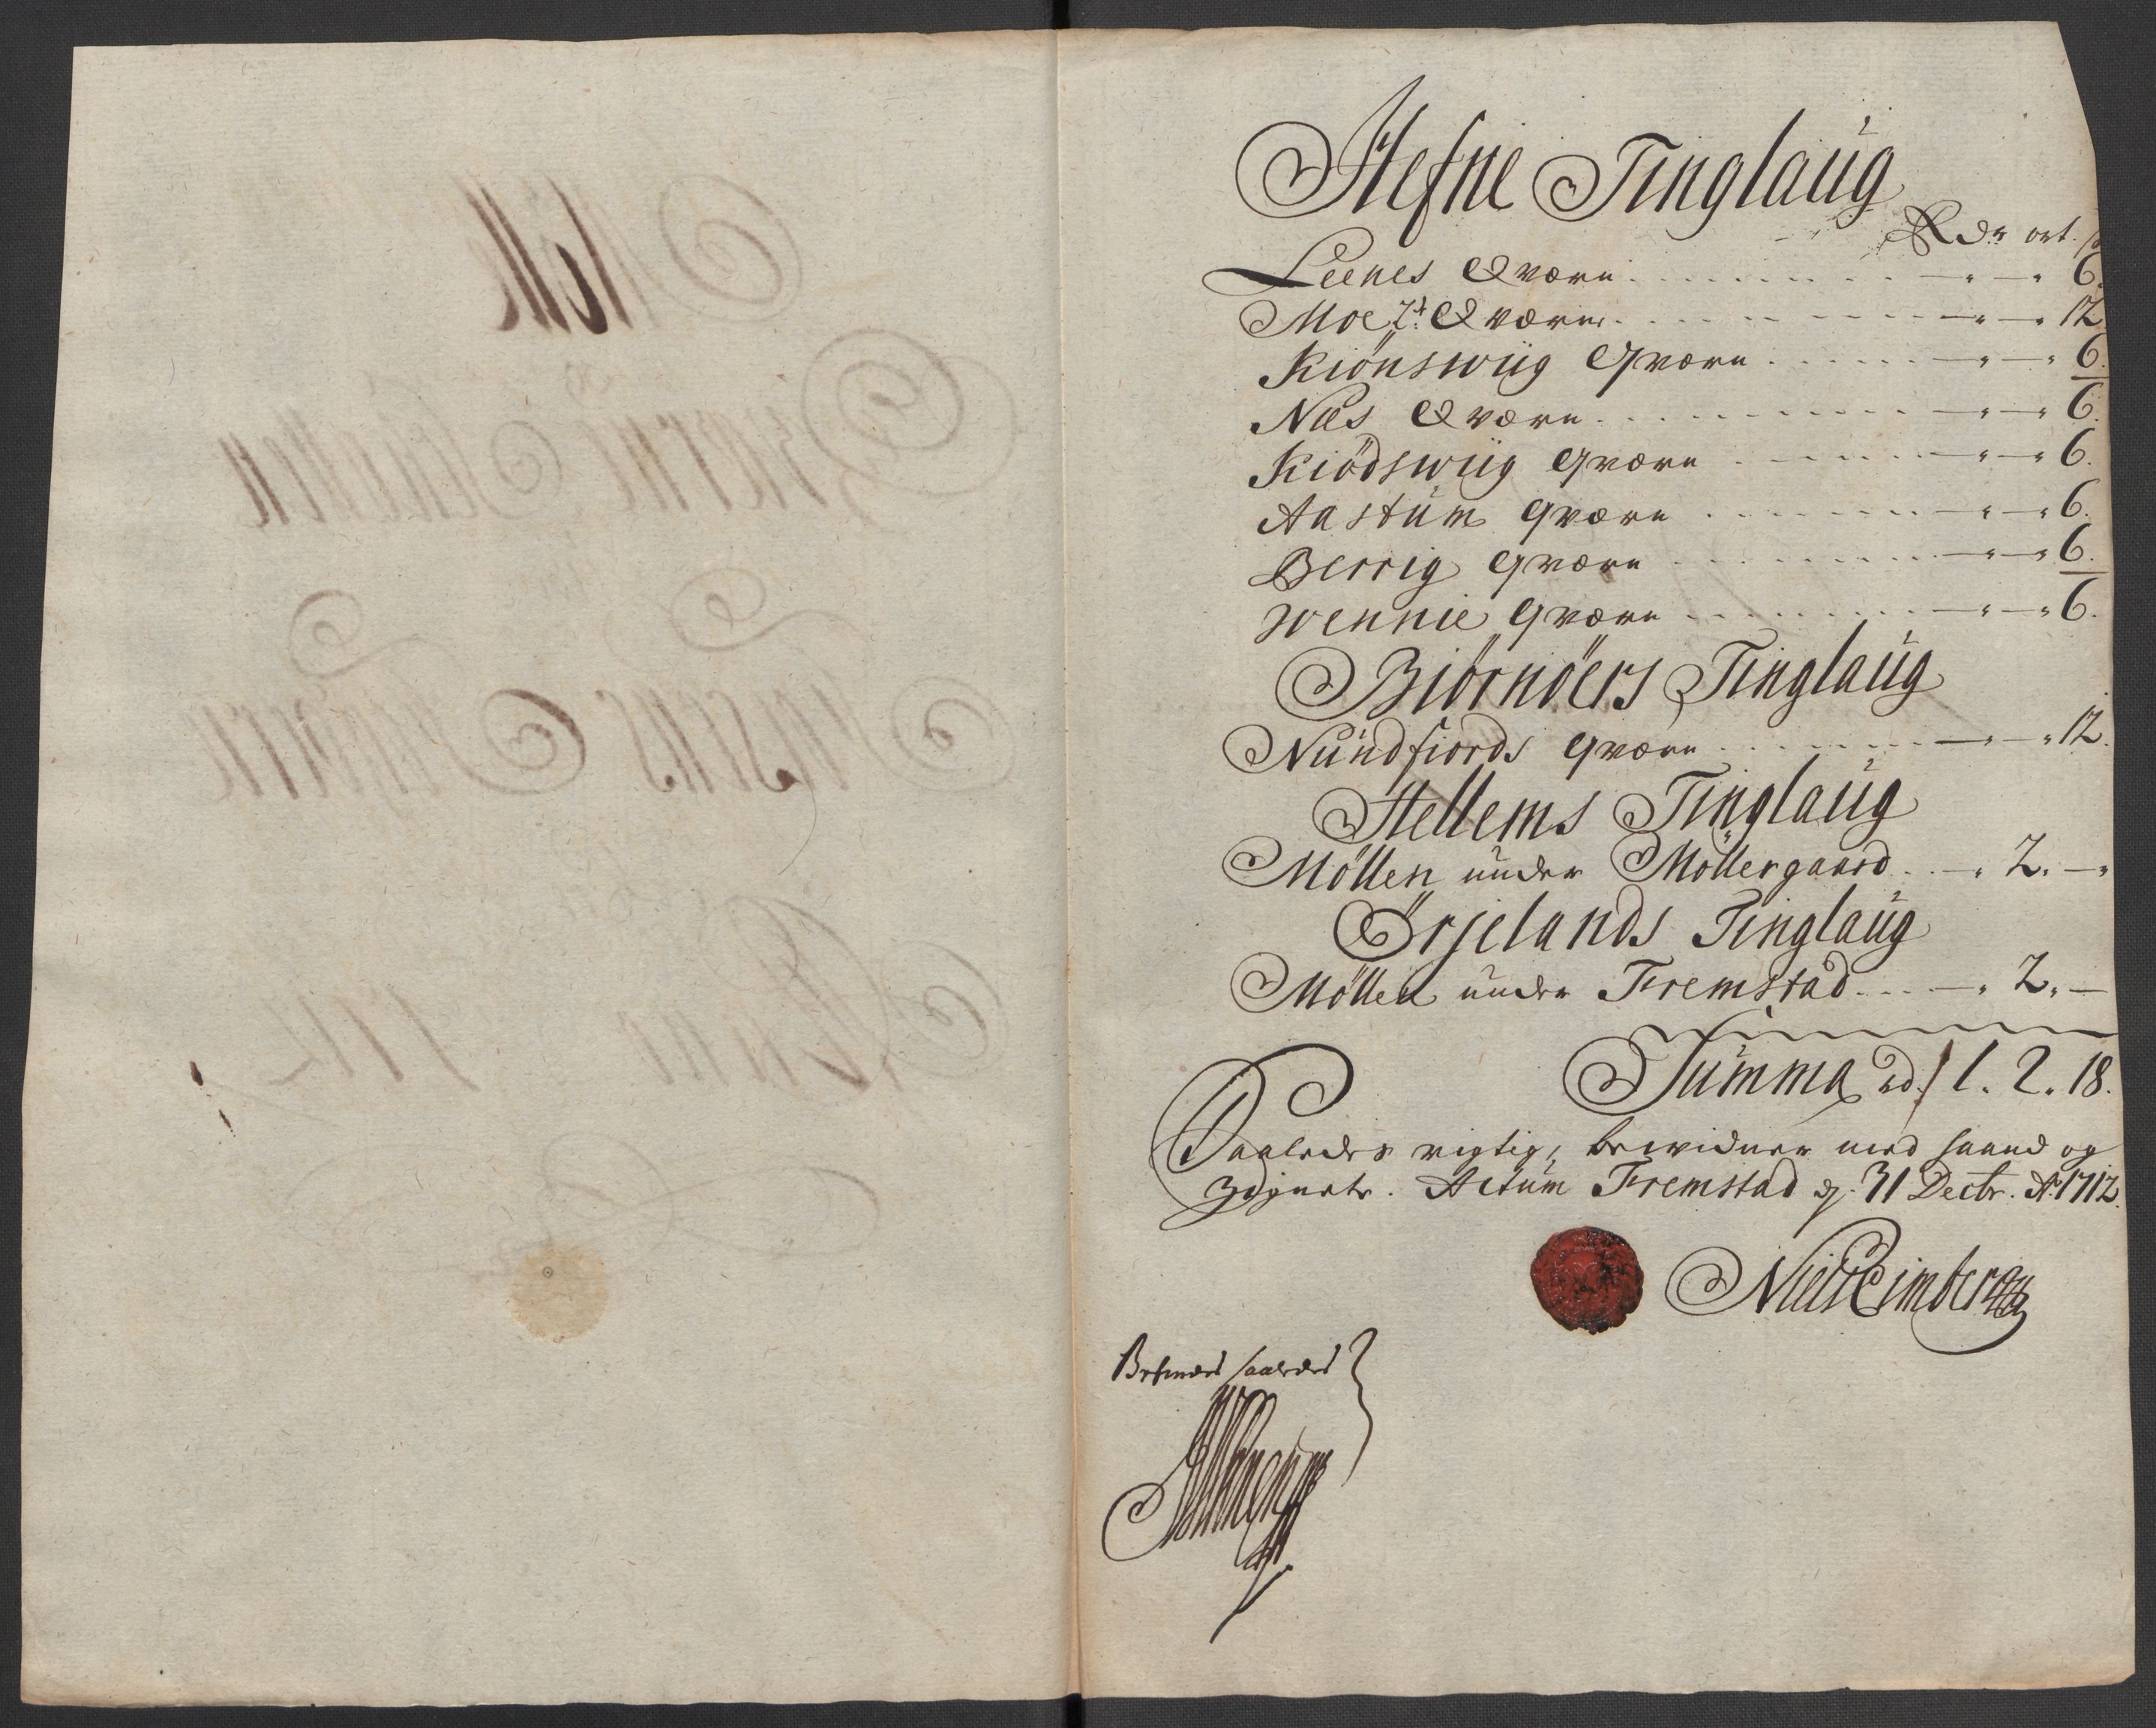 Hefne Tinglaug
Rdr ort. s
Leenes Qværn . . . . . . " — " 6.
Moe 2de Qværne . . . . . . " — " 12
Kiönswiig Qværn . . . . . " — " 6.
Næs Qværn . . . . . . " — " 6.
Kiödswiig Qværn . . . . . " — " 6.
Aastüm Qværn . . . . . " — " 6.
Berrig Qværn . . . . . " — " 6.
Wennie Qværn . . . . . " — " 6.
Biörnöers Tinglaug
Nundfiords Qværn . . . . . " — " 12.
Hellems Tinglaug
Möllen under Möllergaard . . — " 2. — "
Örjelands Tinglaug
Möllen under Fremstad . . . — " 2. —
Summa rd. 1. 2. 18.
Saaledes rigtig, bewidner med haand og
Zignete. Actum Fremstad d. 31 Decbr. Ao. 1712.
Niels Eimberg
saaledes